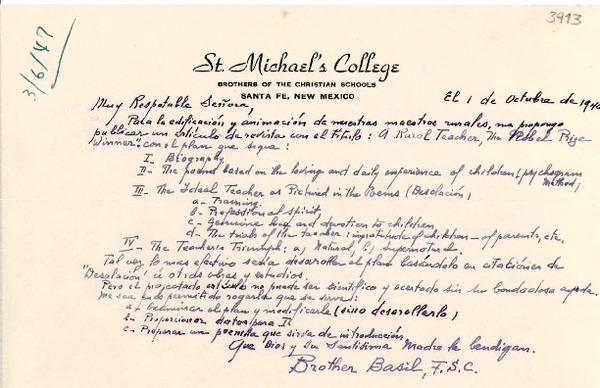 3913
3/6/47
St. Michael's College
BROTHERS OF THE CHRISTIAN SCHOOLS
SANTA FE, NEW MEXICO
Muy Respetable Señora,
El 1 de Octubre de 194
Para la edificación y animación de nuestros maestros rurales, me propongo
publicar un artículo de revista con el título: A Rural Teacher, The Nobel Prize
Winner" con el plan que sigue:
I- Biography
II- The poems based on the loving and daily experience of children (psychogram
method)
III- The Ideal Teacher as Pictured in the Poems (Desolación)
a- Training
b- Professional spirit,
c- Genuine love and devotion to children
d- The trials of the teacher: ingratitude of children - of parents, etc,
IV- The Teacher's Triumph: a) Natural b) Supernatural
Tal vez lo mas efectivo sería desarrollar el plan basándolo en citaciones de
"Desolación" u otras obras y estudios.
Pero el proyectado artículo no puede ser científico y acertado sin su bondadosa ayuda.
Me sea pues permitido rogarle que se sirva:
a- Examinar el plan y modificarle (sino desarrollarlo)
b- Proporcionar datos para I
c- Preparar un poemita que sirva de introducción
Que Dios y Su Santísima Madre le bendigan.
Brother Basil, F.S.C.